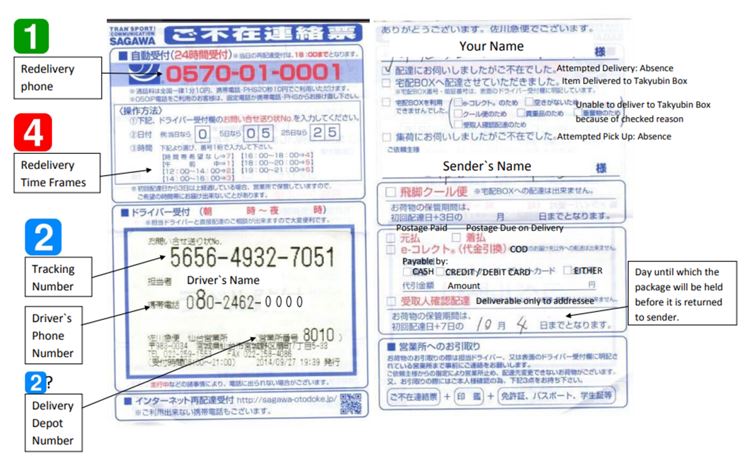 1
Redelivery
phone
4
Redelivery
Time Frames
2
Tracking
Number
Driver`s
Phone
Number
2?
Delivery
Depot
Number
TRANSPORT/
COMMUNICATION
SAGAWA
ご不在連絡票
■自動受付(24時間受付)※当日の再配達受付は、18:00までとなります。
0570-01-0001
※通話料は全国一律1分10円、携帯電話・PHS20秒10円でご利用いただけます。
〈操作方法〉
①下記、ドライバー受付欄のお問い合せ送り状No.を入力してください。
②日付 例:当日なら 0 5日なら 05 25日なら 25
③時間 下記より選び、番号1桁で入力して下さい。
[時間帯希望なし⇒7] [16:00−18:00⇒4]
[午前中⇒1] [18:00−20:00⇒5]
[12:00−14:00⇒2] [19:00−21:00⇒6]
[14:00−16:00⇒3]
※初回配達日から3日以上経過している場合、営業所で保管していますので、
ご希望の時間帯にお届け出来ないことがあります。
■ドライバー受付 (朝 時〜夜 時)
※担当ドライバーと直接配達のご相談が出来ますので大変便利です。
お問い合せ送り状No.
5656-4932-7051
担当者 Driver`s Name
携帯電話 080-2462-0000
佐川急便 仙台営業所 営業所番号 8010)
FAX 022-258-4086
2014/09/27 19:39 発行
走行中などの諸事情により、電話に出られない場合がございます。
■インターネット再配達受付 http://sagawa-otodoke.jp/
※ご利用出来ない携帯電話もございます。
ありがとうございます。佐川急便でございます。
Your Name
様
配達にお伺いしましたがご不在でした。Attempted Delivery: Absence
宅配BOXへ配達させていただきました。Item Delivered to Takyubin Box
宅配BOXを利用できませんでした。
e-コレクト。のため 空きがないため
クール便のため 貴重品のため
受取人確認配達のため
Unable to deliver to Takyubin Box
because of checked reason
集荷にお伺いしましたがご不在でした。Attempted Pick Up: Absence
ご依頼主様
Sender`s Name
様
飛脚クール便 ※宅配BOXへの配達は出来ません。
お荷物の保管期間は、
初回配達日+3日の 月 日までとなります。
Postage Paid Postage Due on Delivery
元払 着払
e-コレクト。(代金引換) COD
Payable by:
CASH CREDIT/DEBIT CARD カード EITHER
代引金額 Amount 円
受取人確認配達 Deliverable only to addressee
お荷物の保管期間は、
初回配達日+7日の 10月 4日までとなります。
Day until which the
package will be held
before it is returned
to sender.
■営業所へのお引取り
お荷物のお引取りの際は担当ドライバー、又は表面のドライバー受付欄に明記
されている営業所まで事前にご連絡をお願いします。
ご依頼主様からの指定により営業所止め、配達先変更できないお荷物がございます。
又、お引取りの際にはご本人様確認の為、下記3点をお持ち下さい。
ご不在連絡票 + 印鑑 + 免許証、パスポート、学生証等